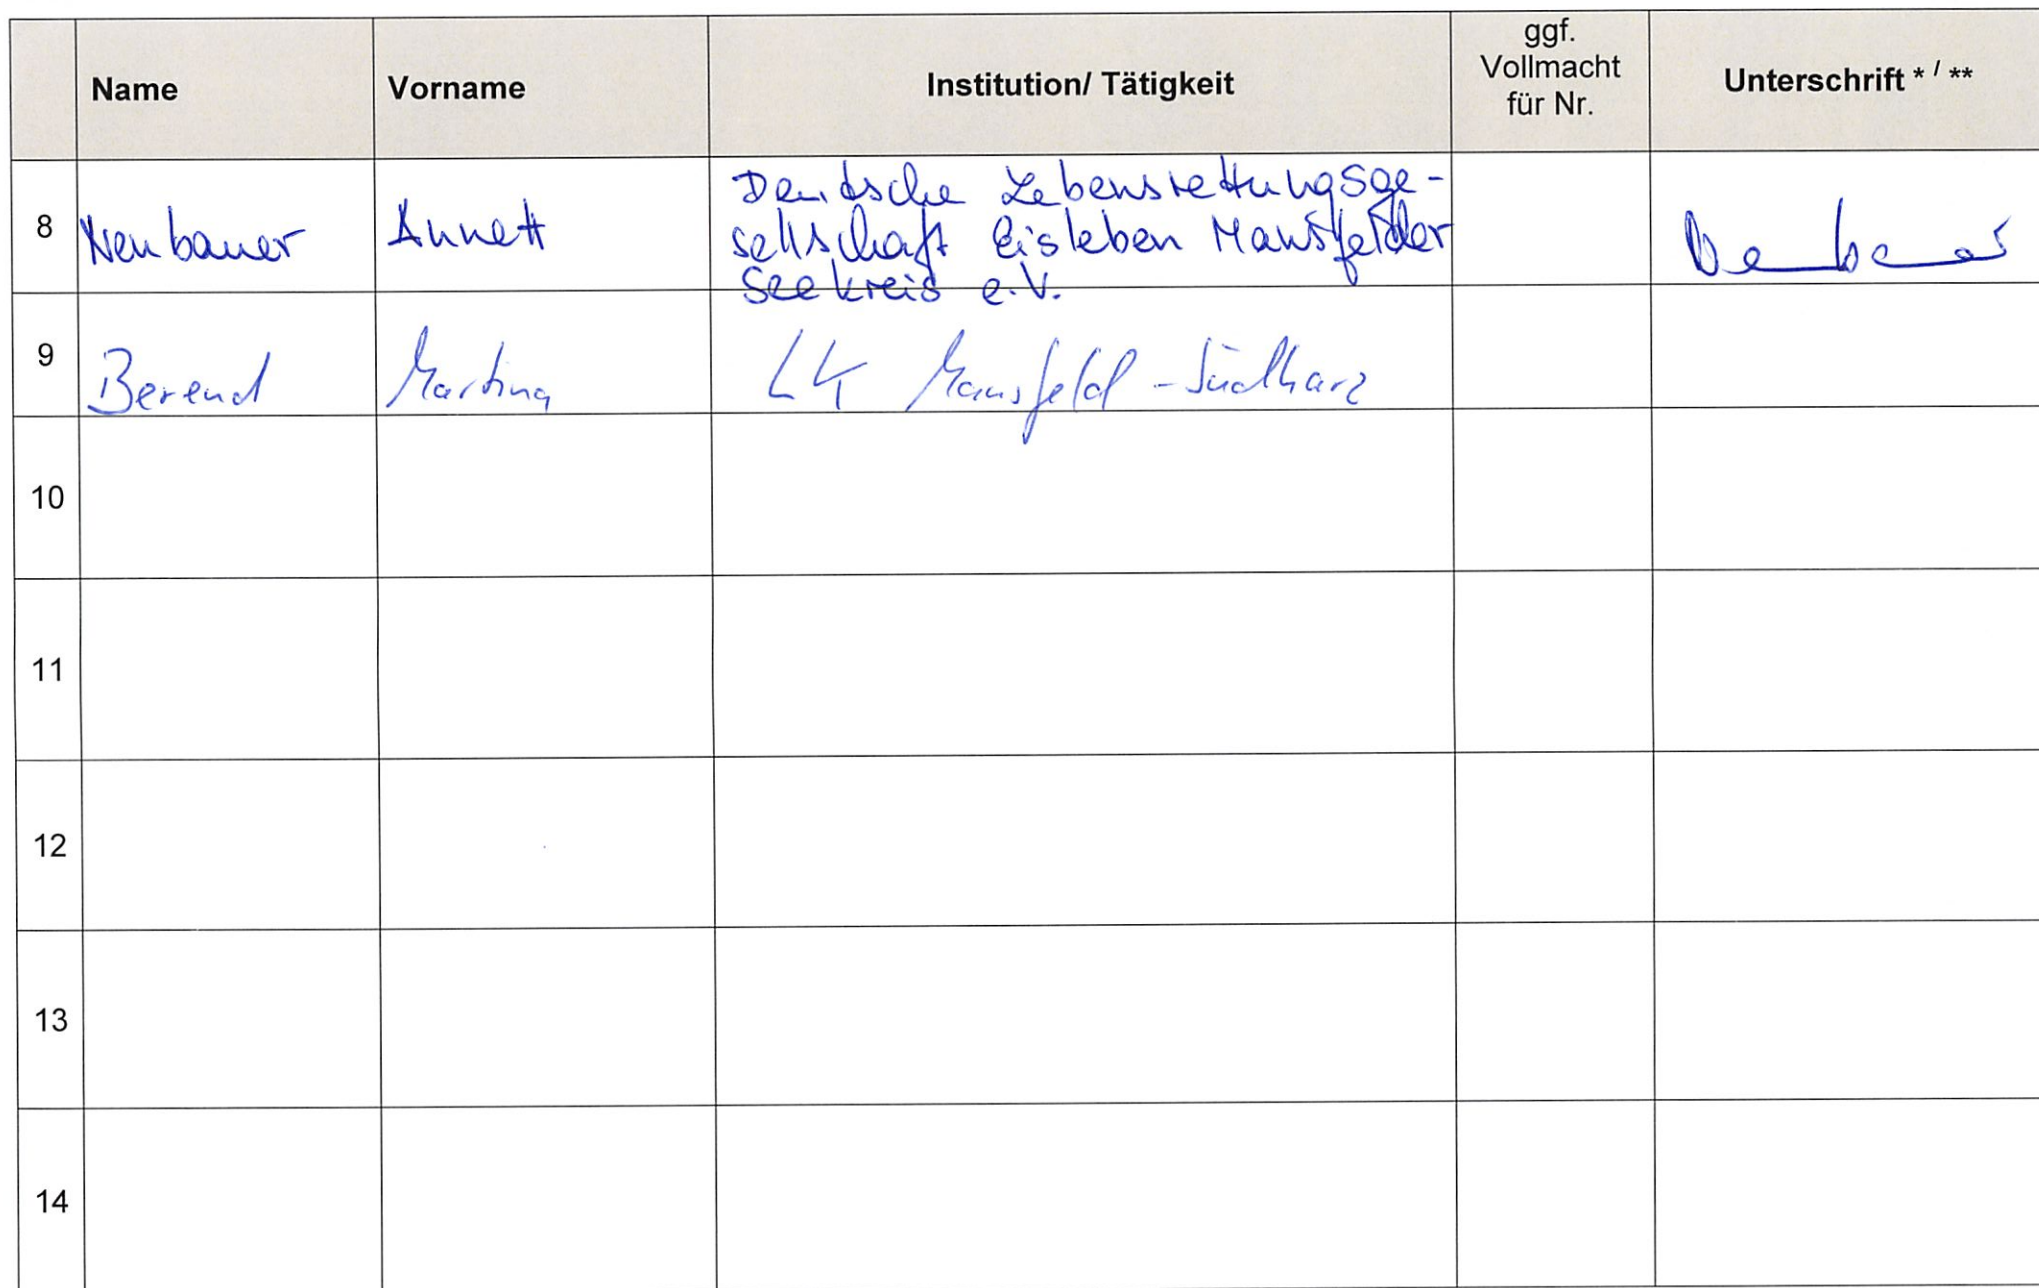 Name Vorname Institution/ Tätigkeit ggf. Vollmacht für Nr. Unterschrift * / **
8 Neubauer Annett Deutsche Lebensrettungsge-
sellschaft Eisleben Mansfelder
Seekreis e.V. Neubauer
9 Berend Martina LK Mansfeld-Südharz
10
11
12
13
14